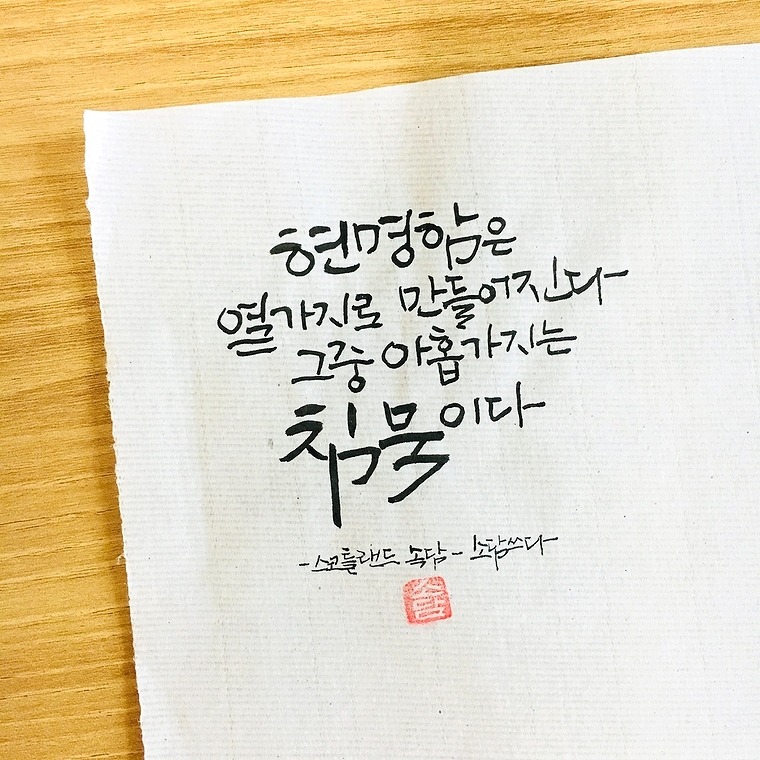 현명함은
열가지로 만들어진다
그중 아홉가지는
침묵이다
-스코틀랜드 속담- 소담쓰다
솜